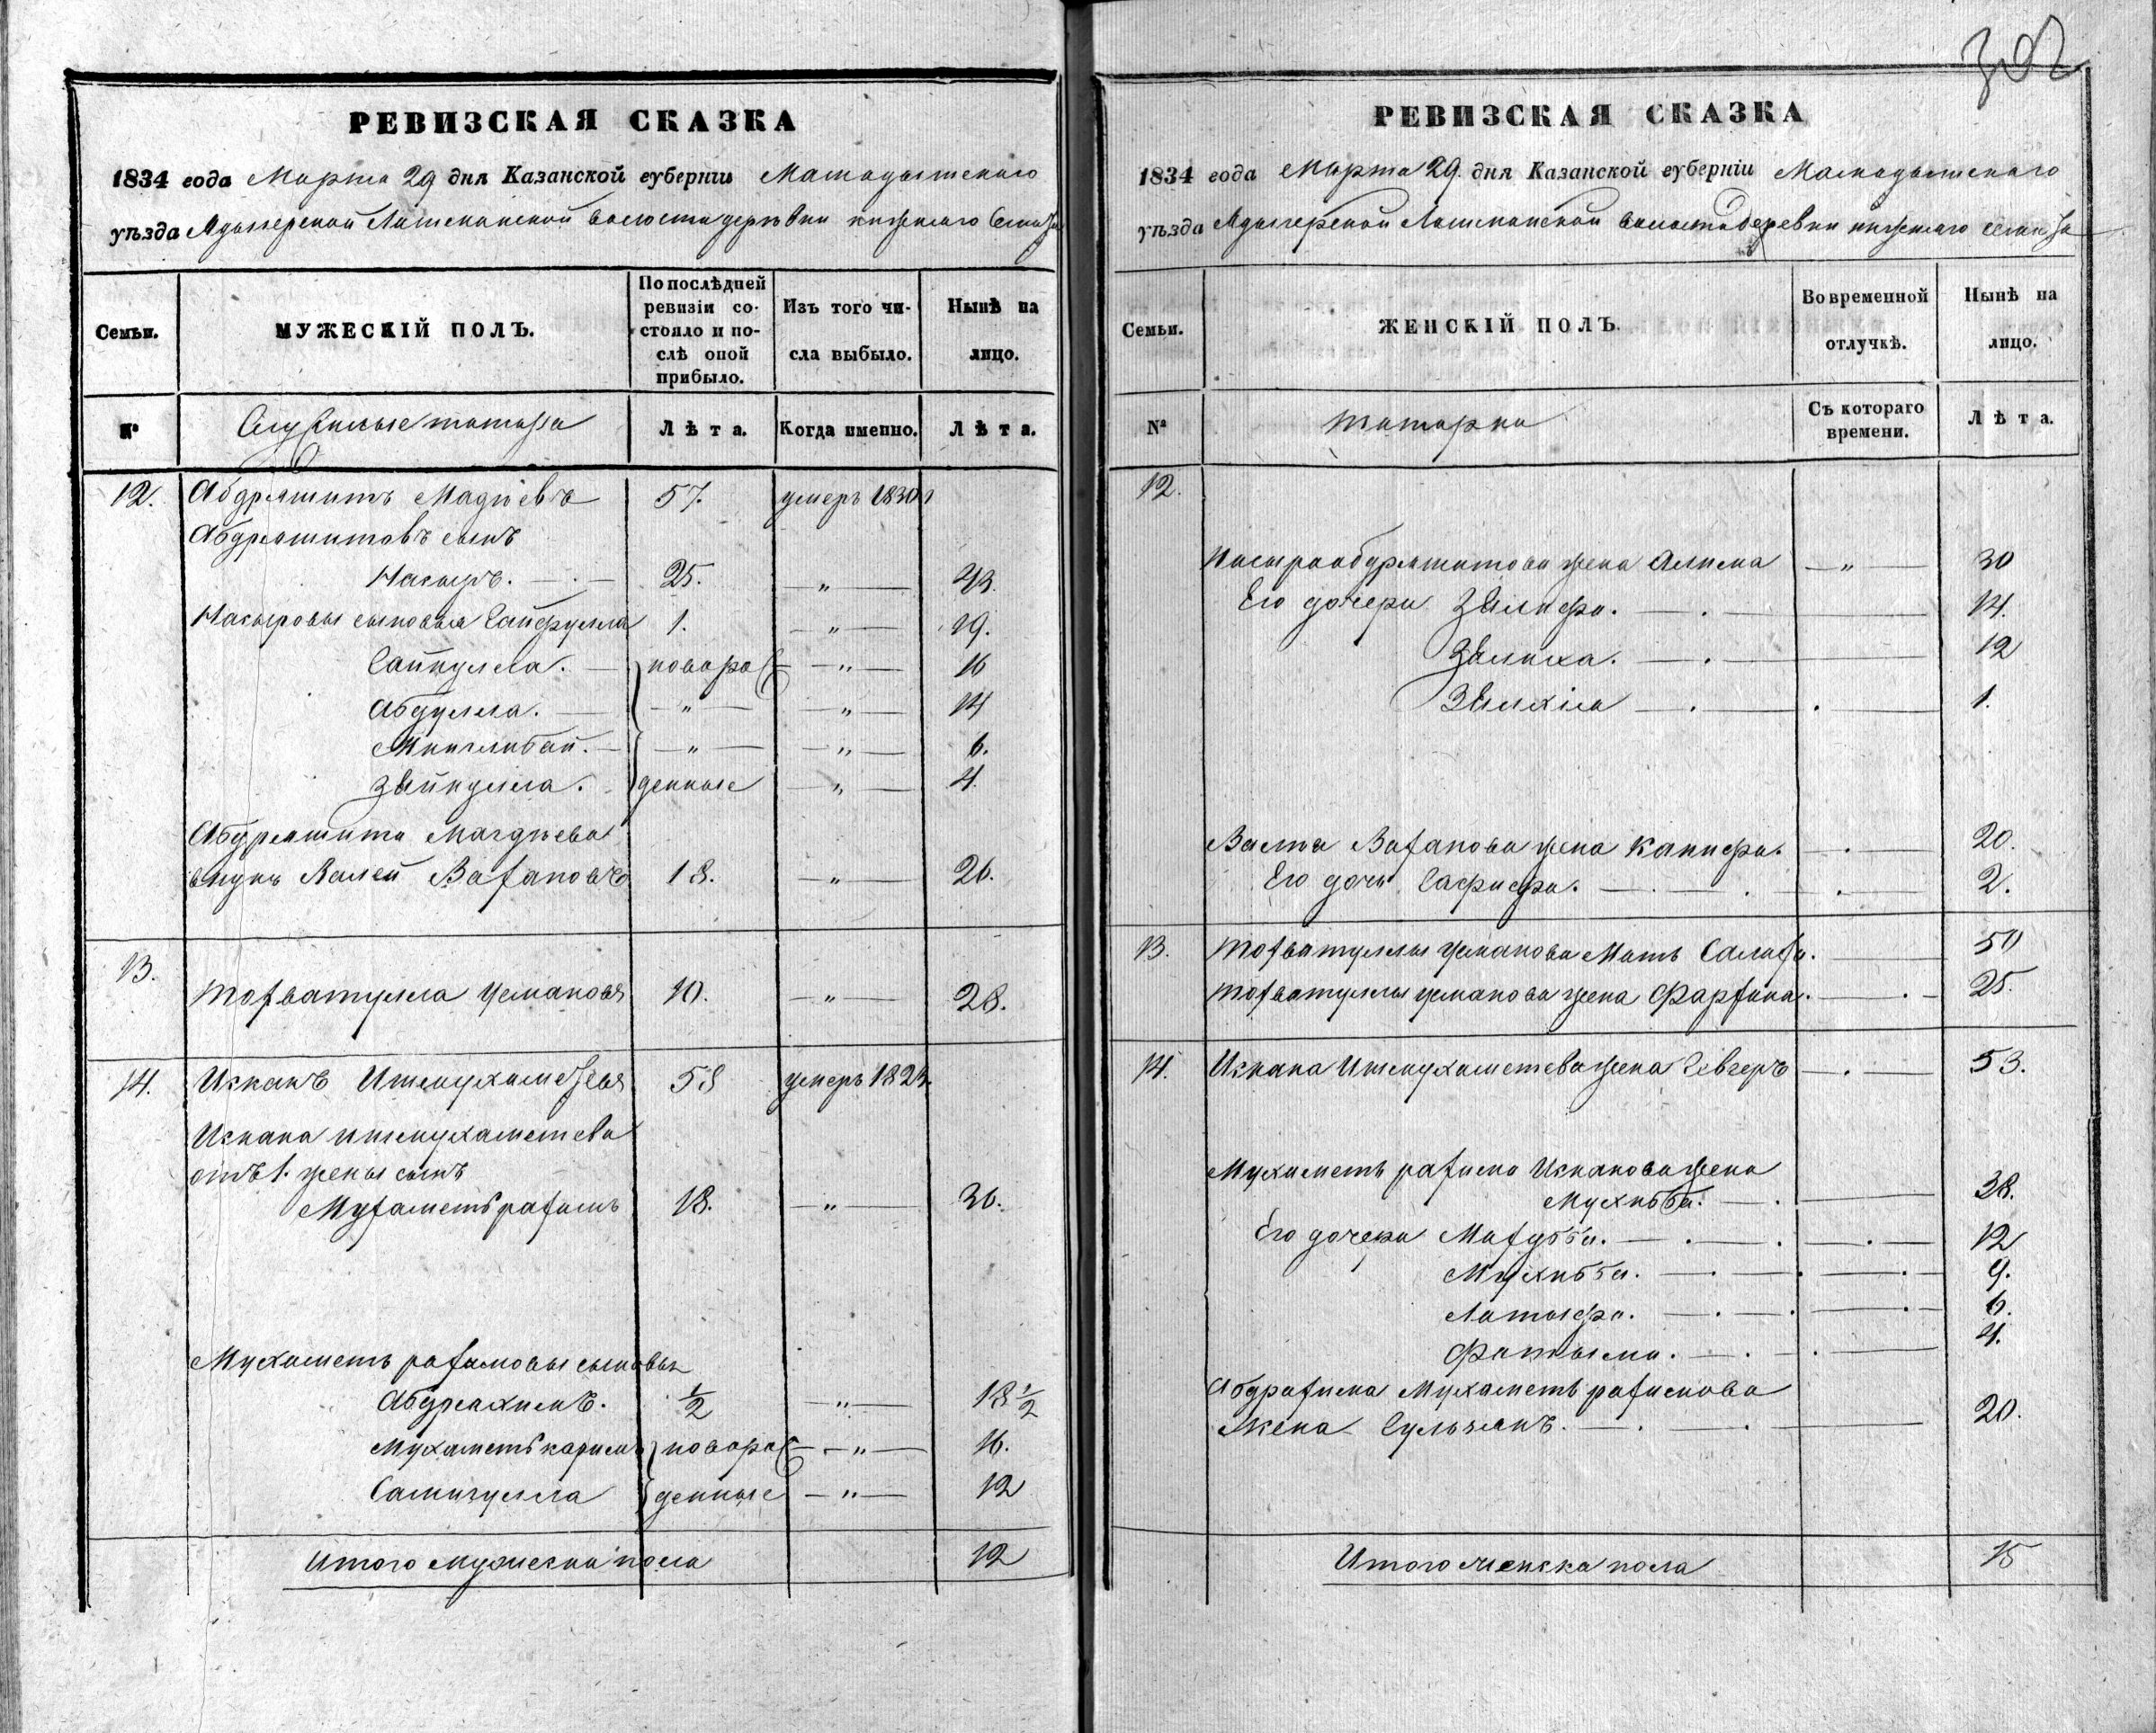 302
РЕВИЗСКАЯ СКАЗКА
1834 года Марта 29 дня Казанской губернiи Мамадышскаго
уѣзда Лашманской волости деревни
Семьи.
МУЖЕСКIЙ ПОЛЪ.
По послѣдней ревизiи состояло и послѣ оной прибыло.
Изъ того числа выбыло.
Нынѣ на лицо.
№
Служилые татара
Лѣта.
Когда именно.
Лѣта.
12. Абдряшитъ Мадiевъ 57. умеръ 1830
Абдряшитовъ сынъ
Насыръ. 25. — „ — 43.
Насыровы сыновья Сайфулла 1. — „ — 19.
Сайкулла. новоро — „ — 16
Абдулла. — „ — — „ — 14
Минглибай. — „ — — „ — 6.
Зайнулла. жденные — „ — 4.
Абдряшита Магдѣева
внукъ Валей Вагаповъ 18. — „ — 26.
13.
Тохватулла Усмановъ 10. — „ — 28.
14. Искакъ Ишмухаметевъ 58 умеръ 182
Искака Ишмухаметева
отъ 1. жены сынъ
Мухаметърахимъ 18. — „ — 36.
Мухаметъ рахимовы сыновья
Абдряхимъ. 1/2 — „ — 18 1/2
Мухаметъкаримъ новоро — „ — 16.
Самигулла жденные — „ — 12
Итого мужеска пола 12
РЕВИЗСКАЯ СКАЗКА
1834 года Марта 29. дня Казанской губернiи Мамадышскаго
уѣзда Лашманской волости деревни
Семьи.
ЖЕНСКIЙ ПОЛЪ.
Во временной отлучкѣ.
Нынѣ на лицо.
№
татарки
Съ котораго времени.
Лѣта.
12.
Насыра абдряшитова жена Алима — „ — 30
Его дочери Залифа. 14.
Залиха. 12
1.
Валия Вагапова жена 20.
Его дочь Сафифа. 2.
13. Тохватуллы Усманова Мать 50
Тохватуллы Усманова жена 25.
14. Искака Ишмухаметева жена 53.
Мухаметъ рахима Искакова жена
Мухибба. 38.
Его дочери Махубба. 12
Мухибба. 9.
Латыфа. 6.
Фатыма. 4.
Абдрахима Мухаметърахимова
жена 20.
Итого женска пола 15